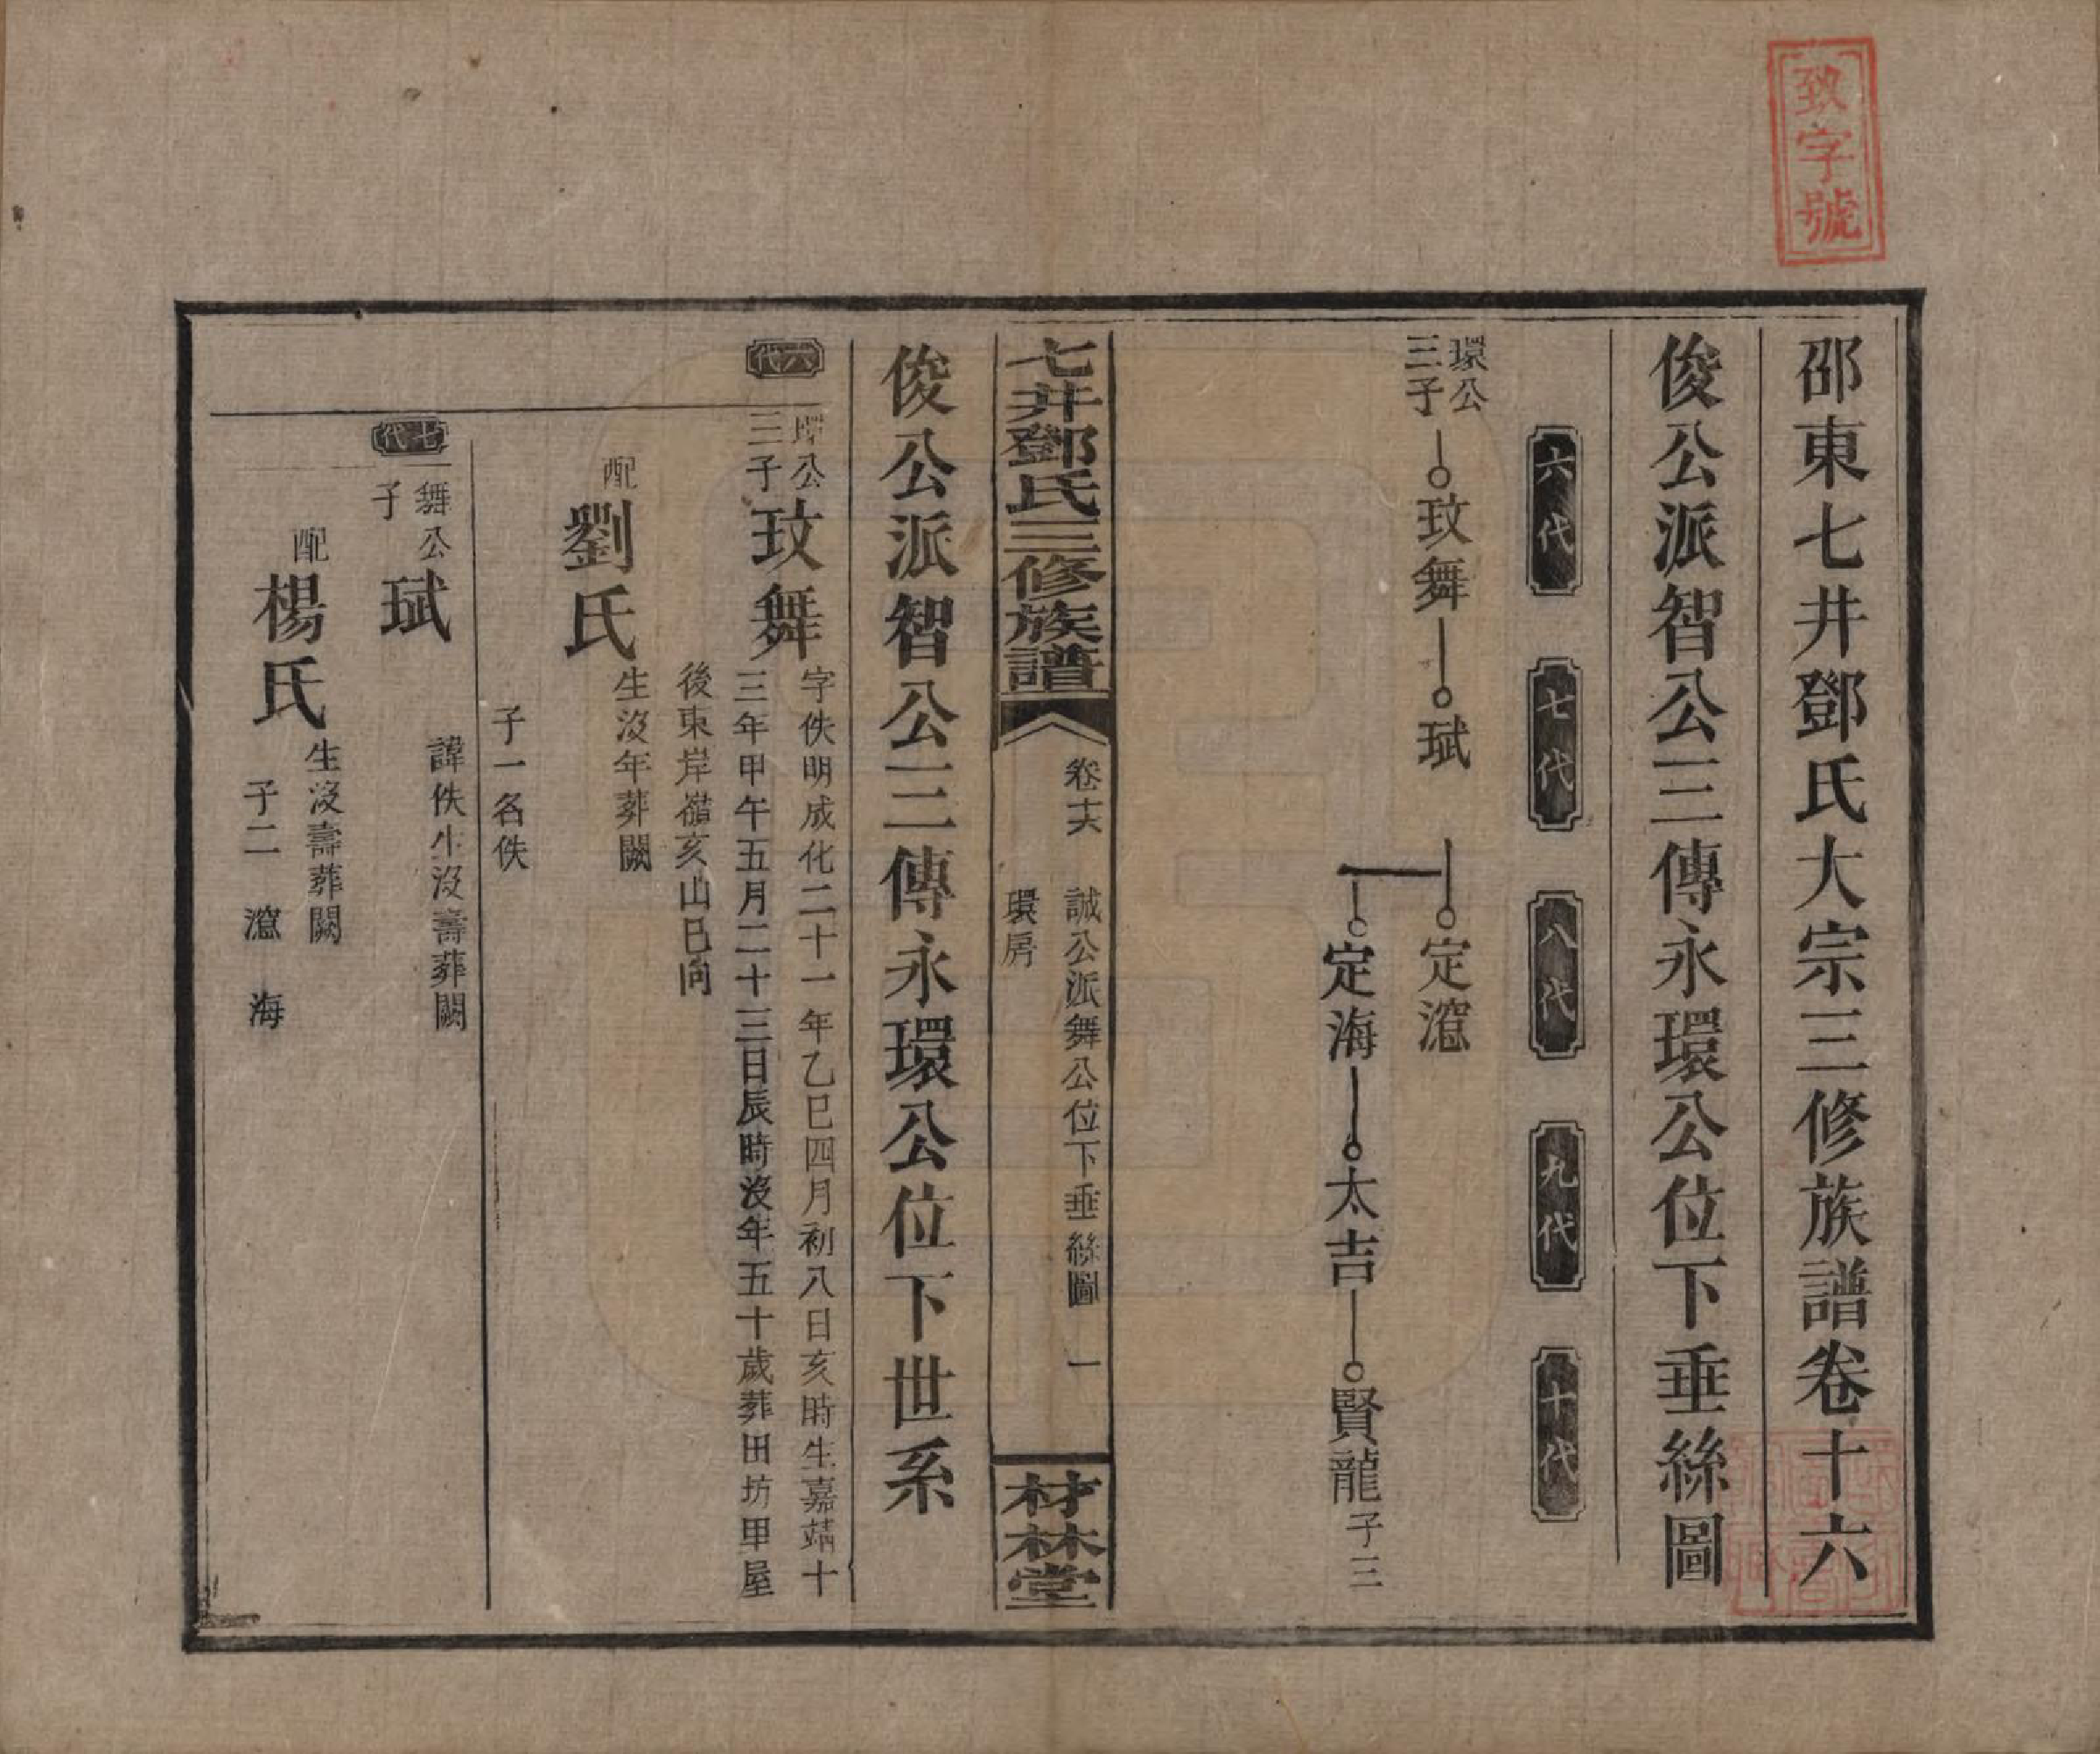 致字號
邵東七井鄧氏大宗三修族譜卷十六
俊公派智公三傳永環公位下垂絲圖
六代
七代
八代
九代
十代
環公
三子
玟舞
珷
定漋
定海
太吉
賢龍
子三
七井鄧氏三修族譜
卷十六
誠公派舞公位下垂絲圖
一
環房
材林堂
俊公派智公三傳永環公位下世系
六代
環公
三子
玟舞
字佚明成化二十一年乙巳四月初八日亥時生嘉靖十
三年甲午五月二十三日辰時沒年五十歲葬田坊甲屋
後東岸嶺亥山巳向
配
劉氏
生沒年葬闕
子一名佚
七代
舞公
子
珷
諱佚生沒壽葬闕
配
楊氏
生沒壽葬闕
子二 漋 海